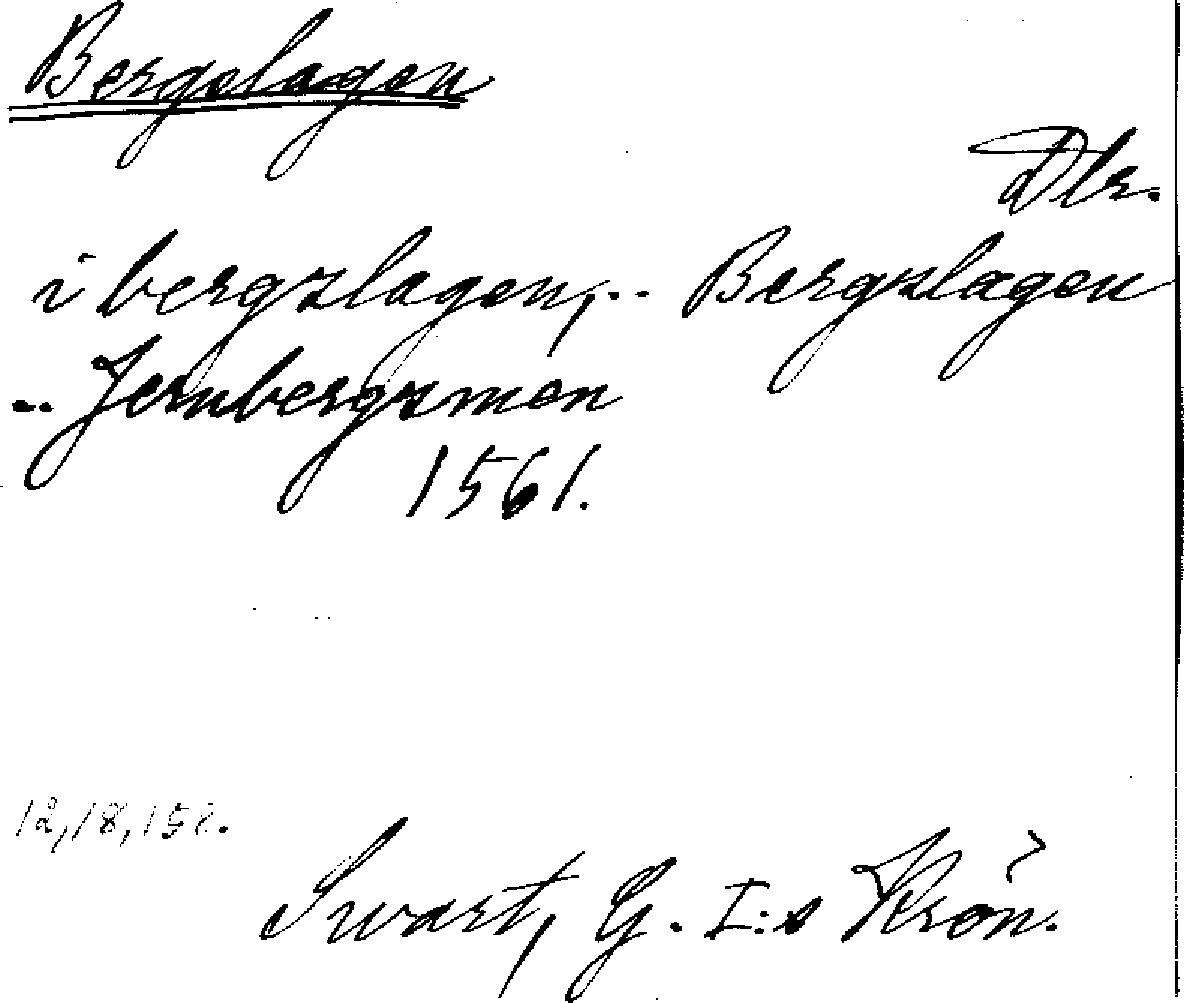 Bergslagen
Dlr.
i bergzlagen,.. Bergzlagen
.. Jernbergzmen
1561.
12, 18, 152.
Swart, G. I:s Krön.